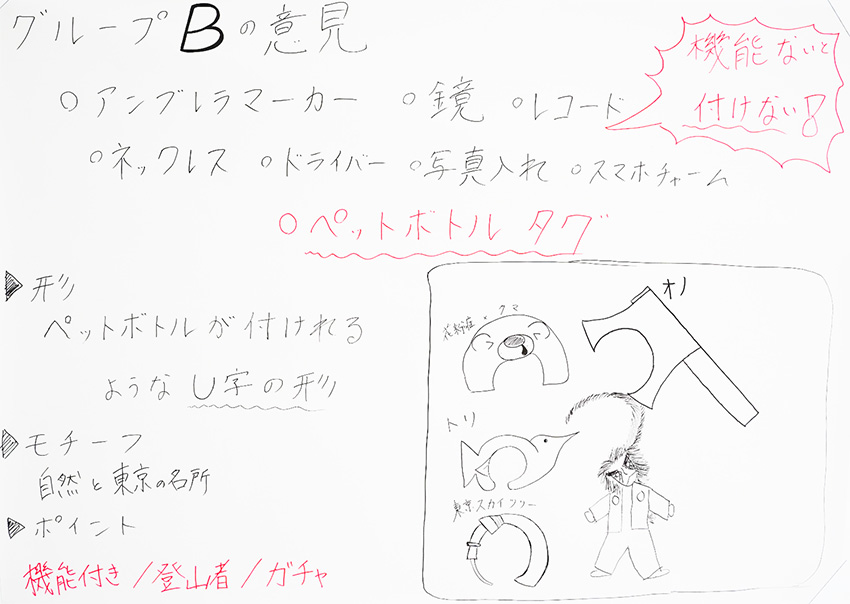 グループBの意見
機能ないと
付けない!
○アンブレラマーカー ○鏡 ○レコード
○ネックレス ○ドライバー ○写真入れ ○スマホチャーム
○ペットボトルタグ
▶形
ペットボトルが付けれる
ようなU字の形
▶モチーフ
自然と東京の名所
▶ポイント
機能付き/登山者/ガチャ
オノ
花粉症のクマ
トリ
東京スカイツリー